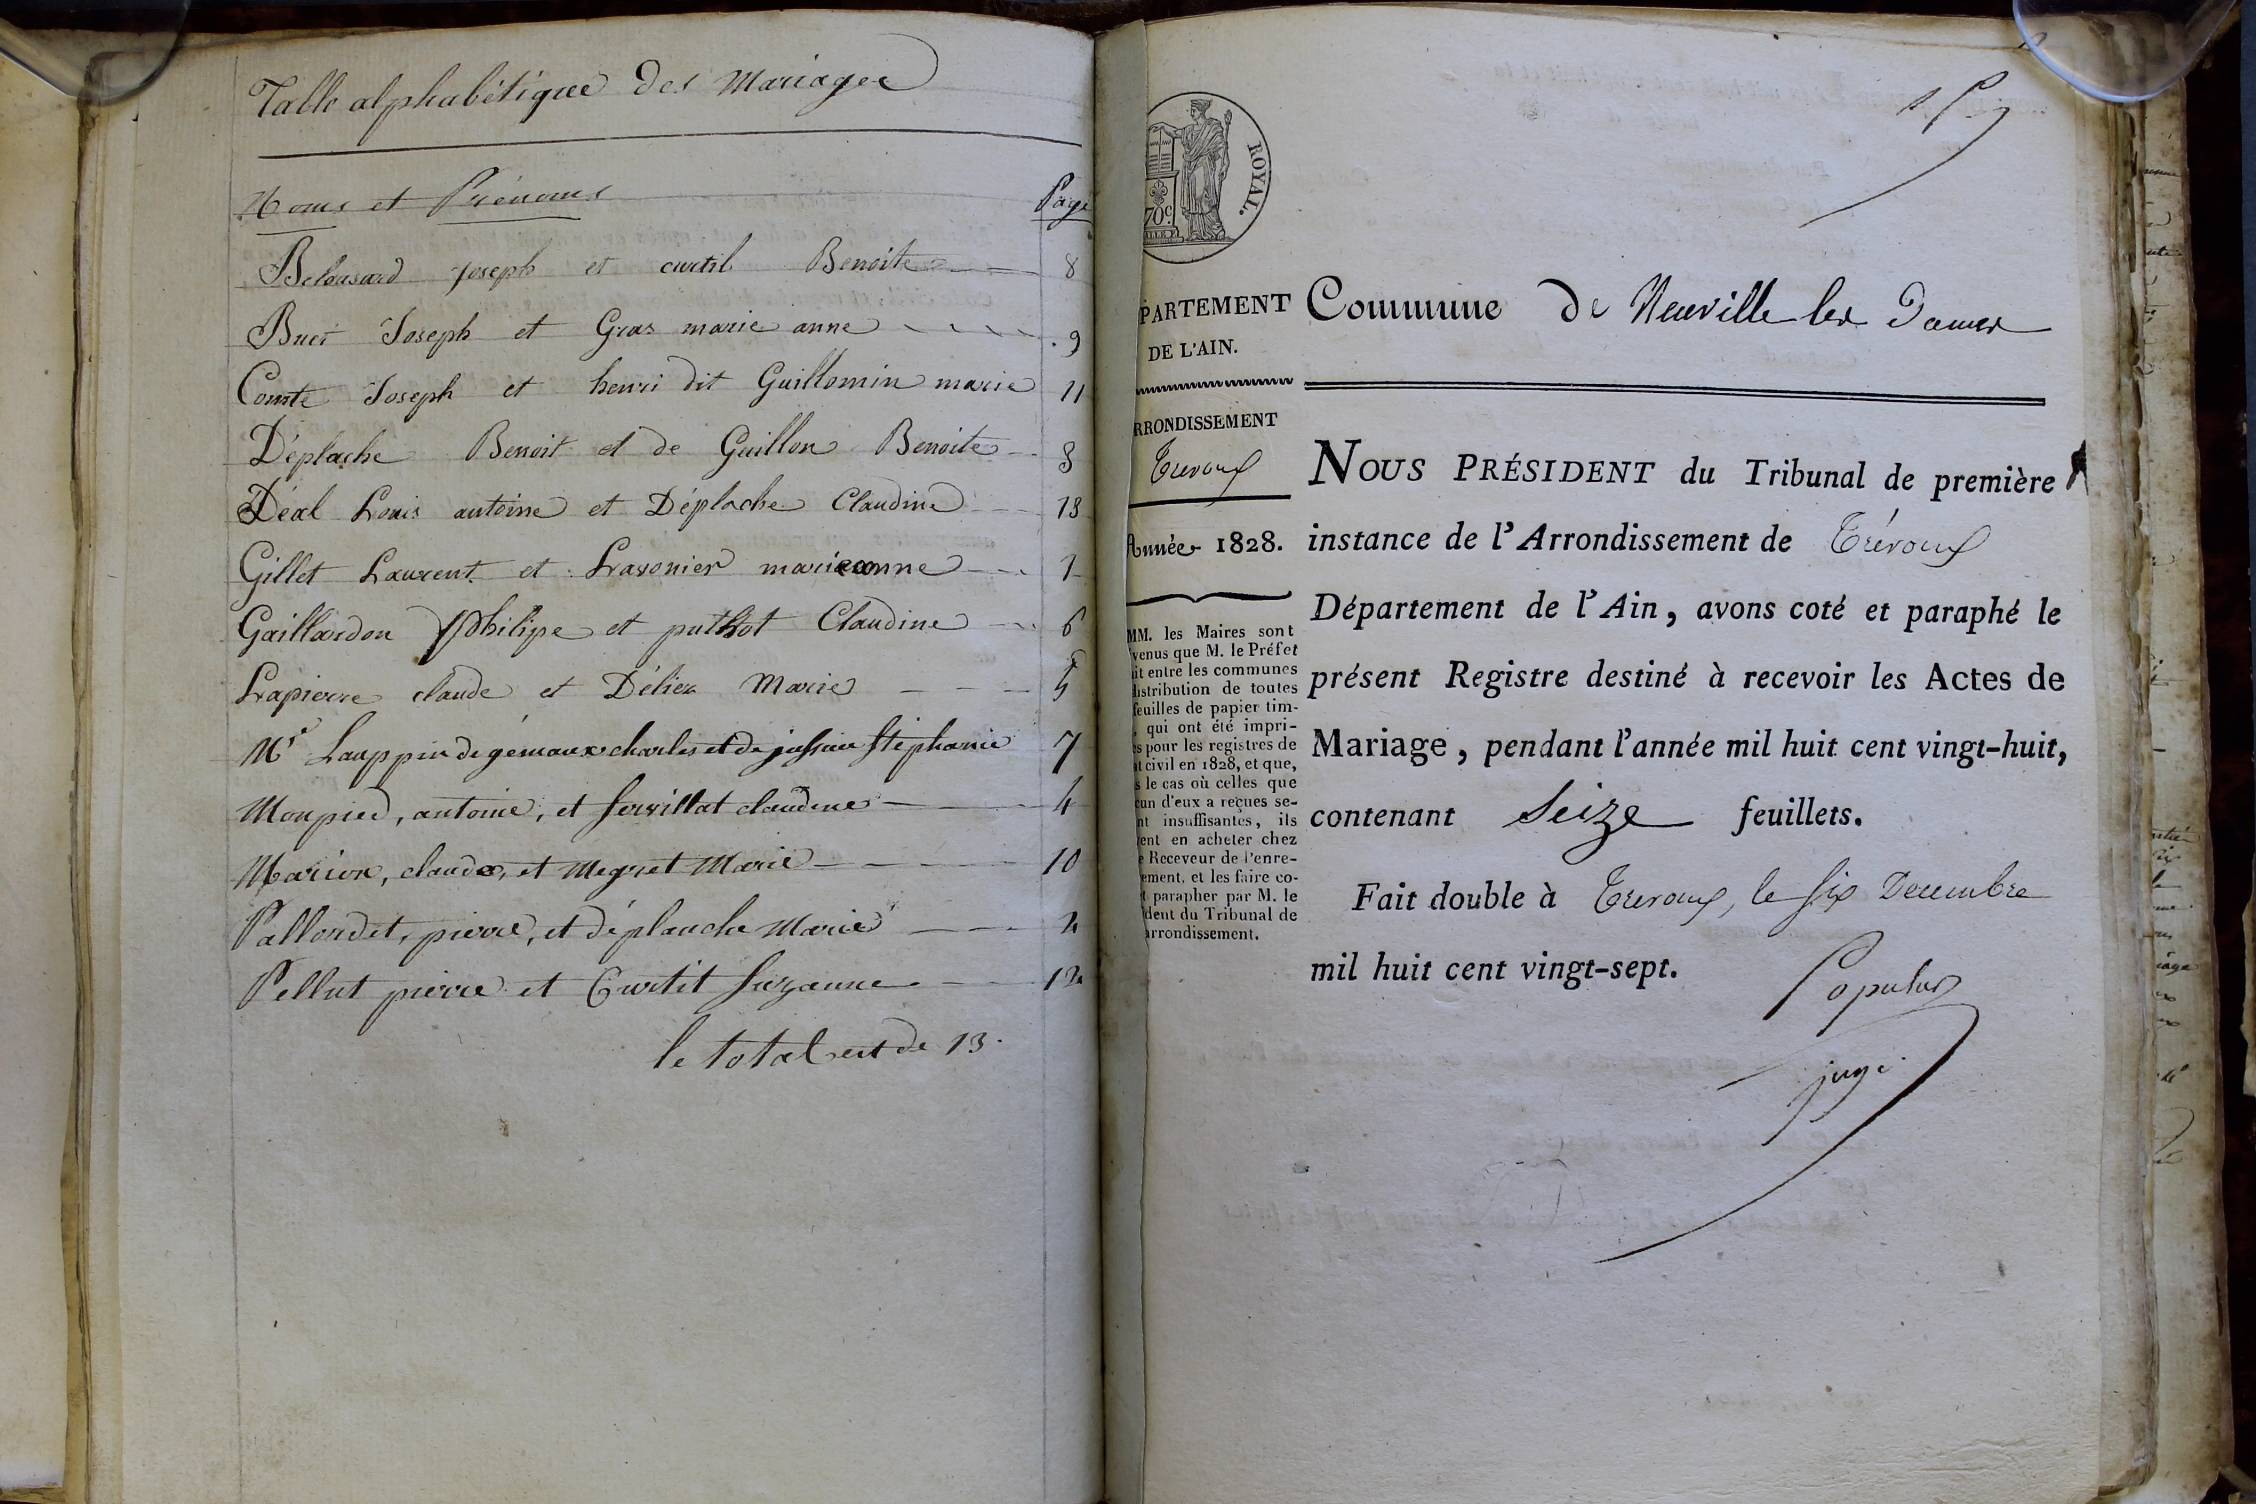 Table alphabétique des Mariages
Noms et Prénoms Page
Belousard Joseph et curtil Benoite 8
Buet Joseph et Gras marie anne 9
Comte Joseph et henri dit Guillemin marie 11
Déplache Benoit et de Guillon Benoite 3
Déal Louis antoine et Déplache Claudine 13
Gillet Laurent et Lrasonier marieanne 1
Gaillardon Philipe et puthot Claudine 6
Lapierre claude et Déliez Marie 5
Mr Lauppin de gémaux charles et de jussieu Stéphanie 7
Monpied, antoine, et Servillat claudine 4
Marion, claude, et Megret Marie 10
Pallordet, pierre, et déplanche Marie 2
Pellut pierre et Curtit Suzanne 12
le total est de 13.
ROYAL.
70c.
PARTEMENT
DE L'AIN.
RRONDISSEMENT
Trévoux
Année 1828.
MM. les Maires sont
venus que M. le Préfet
it entre les communes
distribution de toutes
feuilles de papier tim-
, qui ont été impri-
s pour les registres de
t civil en 1828, et que,
s le cas où celles que
cun d'eux a reçues se-
nt insuffisantes, ils
vent en acheter chez
e Receveur de l'enre-
ement, et les faire co-
t parapher par M. le
dent du Tribunal de
arrondissement.
Commune de Neuville les Dames
NOUS PRÉSIDENT du Tribunal de première
instance de l'Arrondissement de Trévoux
Département de l'Ain, avons coté et paraphé le
présent Registre destiné à recevoir les Actes de
Mariage, pendant l'année mil huit cent vingt-huit,
contenant Seize feuillets.
Fait double à Trevoux, le six Decembre
mil huit cent vingt-sept.
Populus
juge